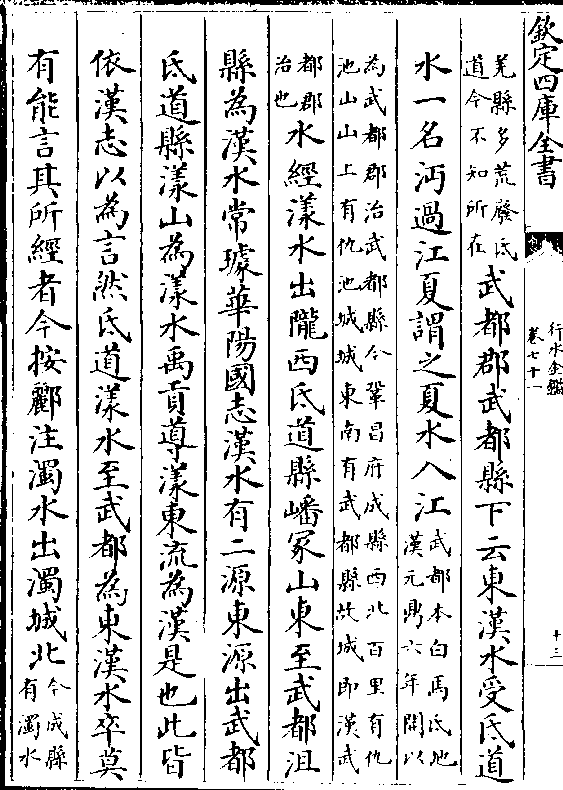 欽定四庫全書
行水金鑑
卷七十一
十三
羌縣多荒廢氐
道今不知所在
武都郡武都縣下云東漢水受氐道
水一名沔過江夏謂之夏水入江
武都本白馬氐地
漢元鼎六年開以
為武都郡治武都縣今鞏昌府成縣西北百里有仇
池山山上有仇池城城東南有武都縣故城即漢武
都郡
治也
水經漾水出隴西氐道縣嶓冢山東至武都沮
縣為漢水常璩華陽國志漢水有二源東源出武都
氐道縣漾山為漾水禹貢導漾東流為漢是也此皆
依漢志以為言然氐道漾水至武都為東漢水卒莫
有能言其所經者今按酈注濁水出濁城北
今成縣
有濁水